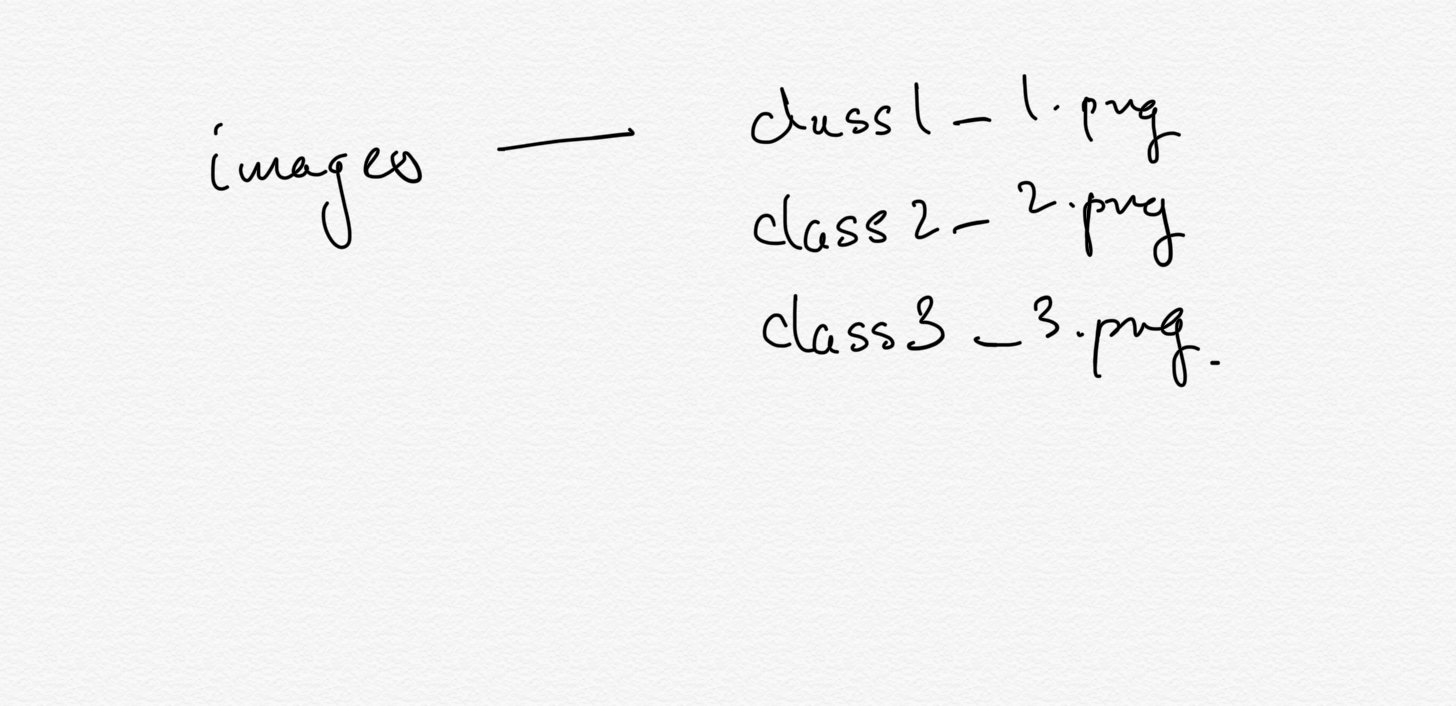 images — class1_1.png
class2_2.png
class3_3.png.